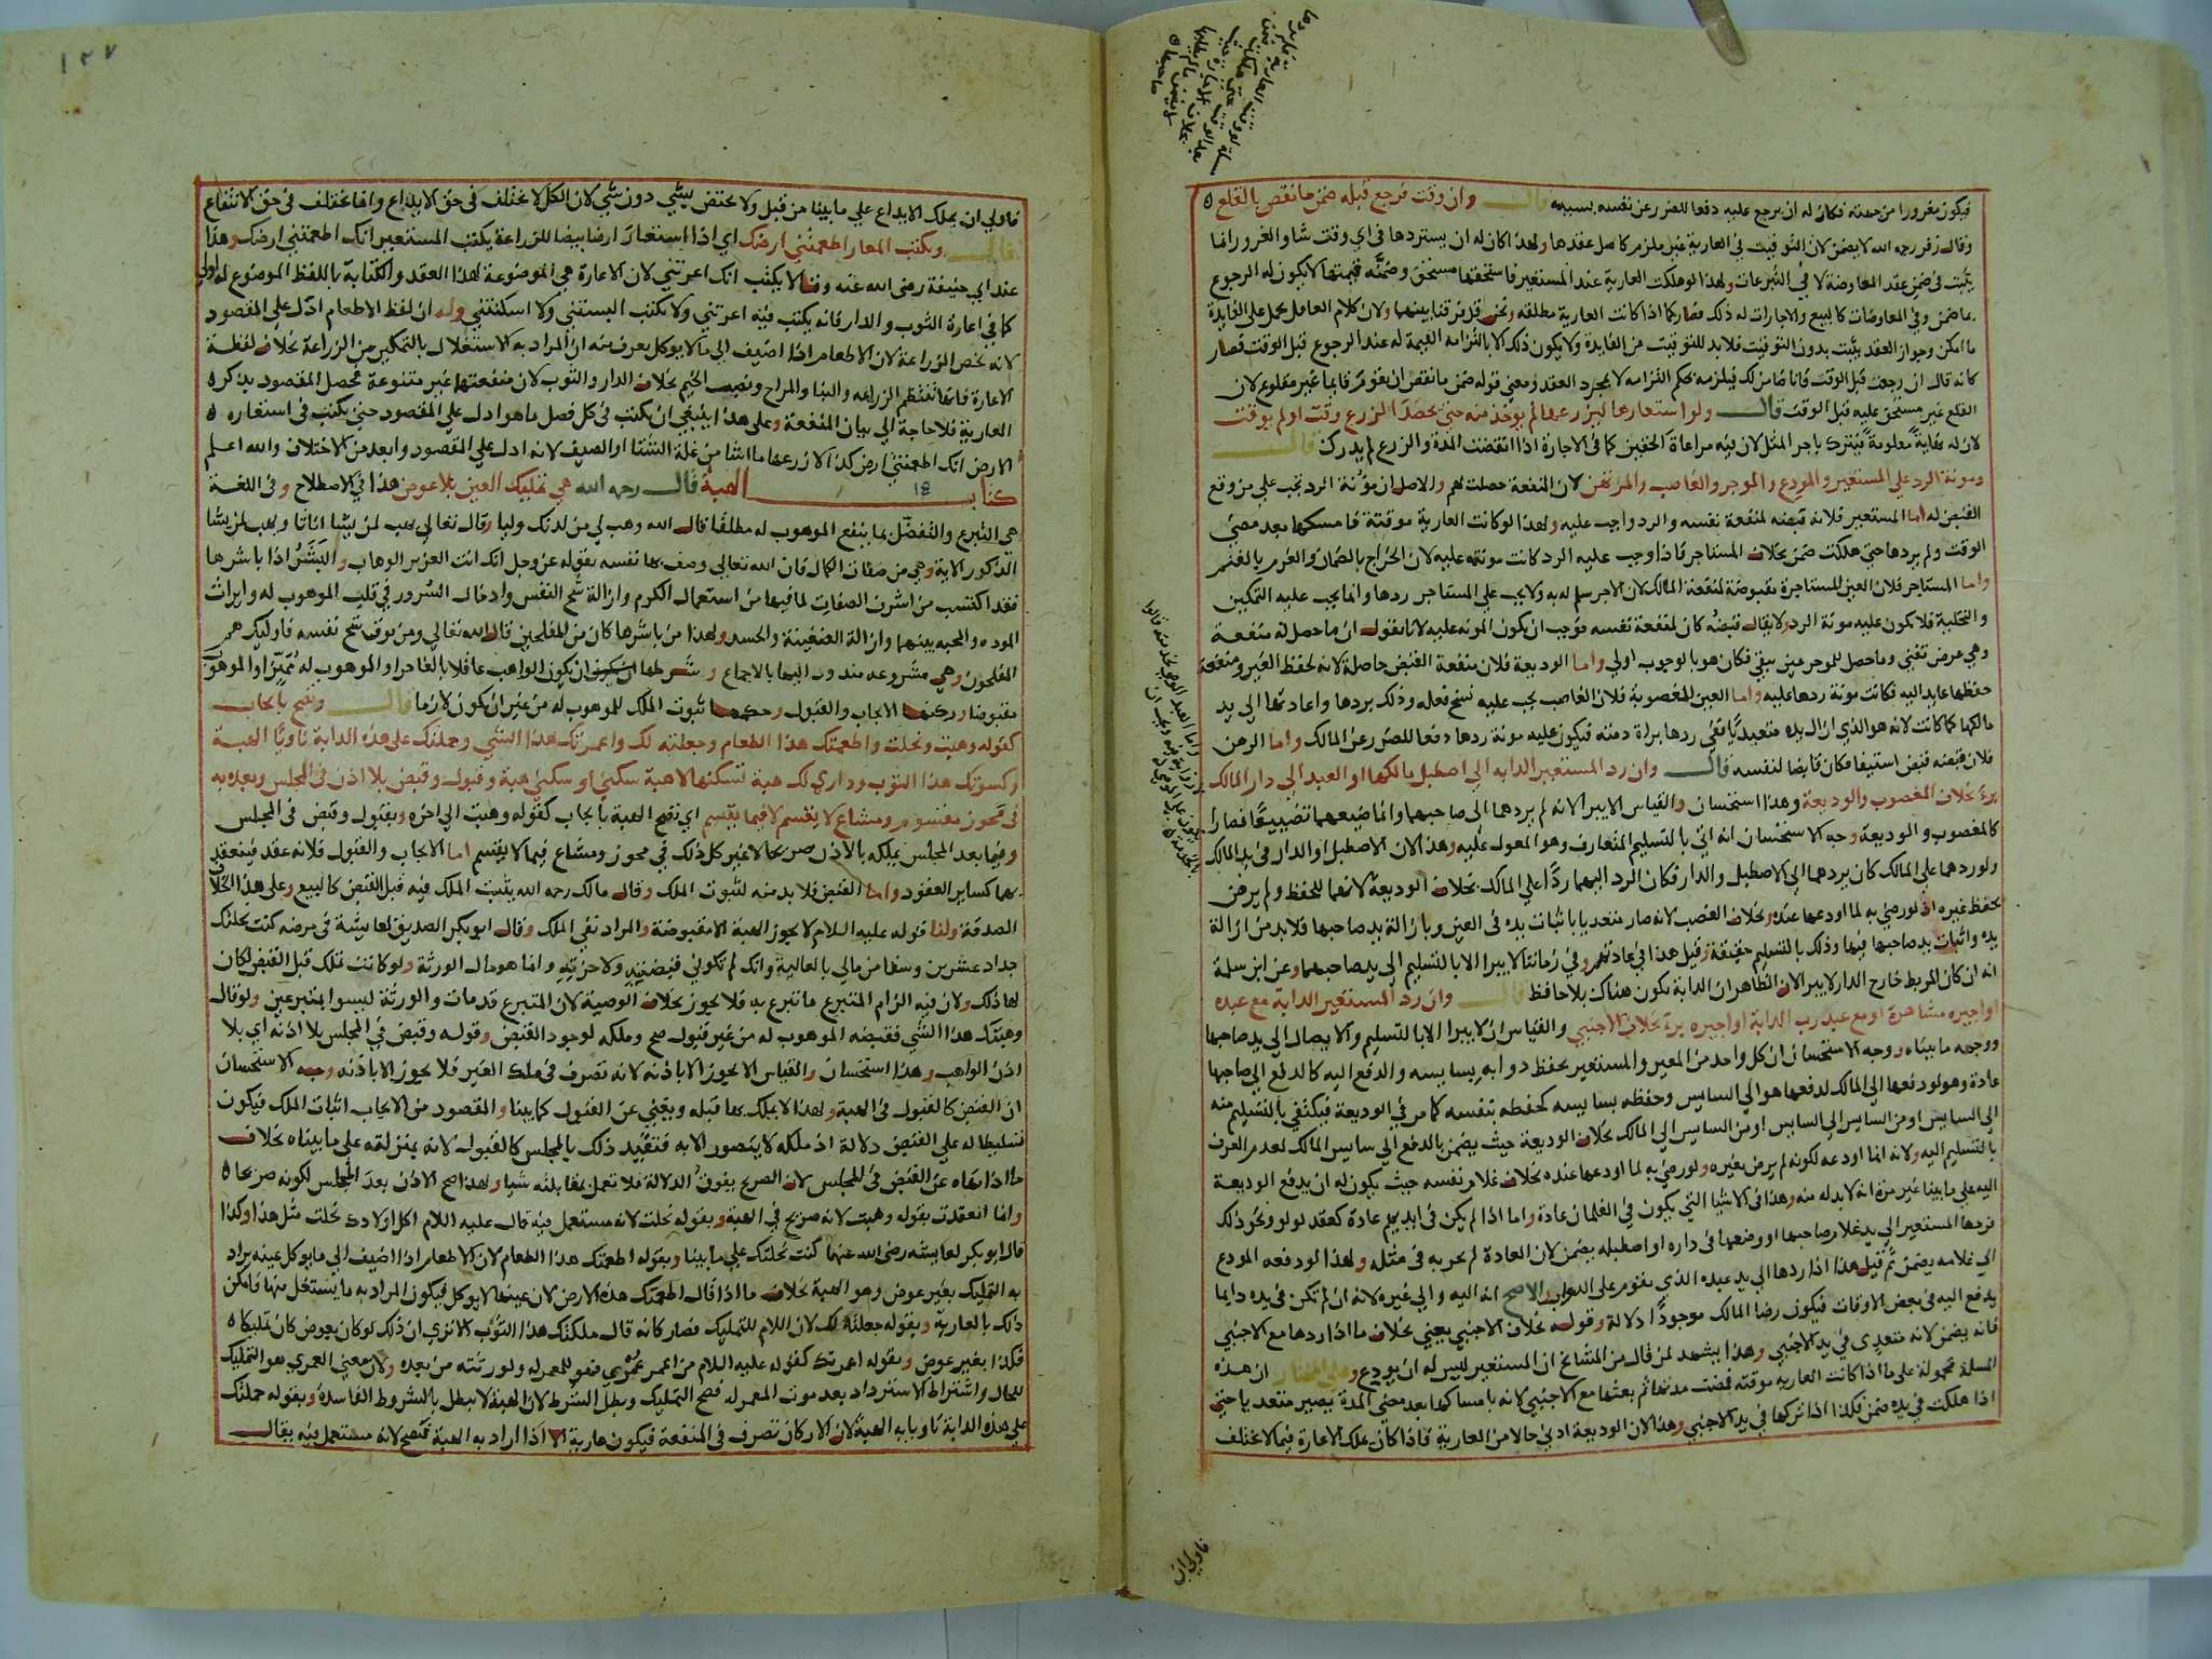 فيكون مغرورا من جهته فكان له ان يرجع عليه دفعا للضرر عن نفسه بسببه قال وان وقت فرجع قبله ضمن ما نقص بالقلع
وقال زفر رحمه الله لا يضمن لان التوقيت في العارية غير ملزم كاصل عقدها ولهذا كان له ان يستردها في اي وقت شا والغرور انما
يثبت في ضمن عقد المعاوضة لا في التبرعات ولهذا لو هلكت العارية عند المستعير فاستحقها مستحق وضمنه قيمتها لا يكون له الرجوع
بما ضمن وفي المعاوضات كالبيع والاجارات له ذلك فصار كما اذا كانت العارية مطلقه ونحن قد فرقنا بينهما ولان كلام العاقل يحمل على الفايدة
ما امكن وجواز العقد يثبت بدون التوقيت فلا بد للتوقيت من الفايدة ولا يكون ذلك الا بالتزامه القيمة له عند الرجوع قبل الوقت فصار
كانه قال ان رجعت قبل الوقت فانا ضامن لك فيلزمه بحكم التزامه لا بمجرد العقد ومعنى قوله ضمن ما نقص ان يقوم قايما غير مقلوع لان
القلع غير مستحق عليه قبل الوقت قال ولو استعارها ليزرعها لم يوخذ منه حتى يحصد الزرع وقت او لم يوقت
لان له نهاية معلومة فيترك باجر المثل لان فيه مراعاة الحقين كما في الاجارة اذا انقضت المدة والزرع لم يدرك قال
ومونة الرد على المستعير والمودع والموجر والغاصب والمرتهن لان المنفعة حصلت لهم والاصل ان مؤنة الرد تجب على من وقع
القبض له اما المستعير فلانه قبضه لمنفعة نفسه والرد واجب عليه ولهذا لو كانت العارية موقتة فامسكها بعد مضي
الوقت ولم يردها حتى هلكت ضمن بخلاف المستاجر فاذا وجب عليه الرد كانت مونته عليه لان الخراج بالضمان والغرم بالغنم
واما المستاجر فلان العين المستاجرة مقبوضة لمنفعة المالك لان الاجر سلم له به ولا يجب على المستاجر ردها وانما يجب عليه التمكين
والتخلية فلا تكون عليه مونة الرد ولا يقال قبضه كان لمنفعة نفسه فوجب ان يكون المونه عليه لانا نقول ان ما حصل له منفعة
وهي عرض تفنى وما حصل للموجر عين يبقى فكان هو بالوجوب اولي واما الوديعة فلان منفعة القبض حاصلة لانه لحفظ العين ومنفعة
حفظها عايد اليه فكانت مونة ردها عليه واما العين المغصوبة فلان الغاصب يجب عليه نسخ فعله وذلك بردها واعادتها الى يد
مالكها كما كانت لانه هو الذي ازال يده متعديا ففي ردها براة ذمته فيكون عليه مونة ردها دفعا للضرر عن المالك واما الرهن
فلان قبضه قبض استيفا فكان قابضا لنفسه قال وان رد المستعير الدابه الى اصطبل مالكها او العبد الى دار المالك
برئ بخلاف المغصوب والوديعة وهذا استحسان والقياس لا يبرا لانه لم يردهما الى صاحبهما وانما ضيعهما تضييعا فصار
كالمغصوب والوديعة وجه الاستحسان انه اتى بالتسليم المتعارف وهو المعول عليه وهذا لان الاصطبل او الدار في يد المالك
ولو ردهما على المالك كان يردهما الى الاصطبل والدار فكان الرد اليهما ردا على المالك بخلاف الوديعة لانها للحفظ ولم يرض
بحفظ غيره اذ لو رضي به لما اودعها عنده وبخلاف الغصب لانه صار متعديا باثبات يده في العين وبازالة يد صاحبها فلا بد من ازالة
يده واثبات يد صاحبها فيها وذلك بالتسليم حقيقة وقيل هذا في عادتهم وفي زماننا لا يبرا الا بالتسليم الى يد صاحبهما وعن ابن سلمة
انه ان كان المربط خارج الدار لا يبرا لان الظاهر ان الدابة تكون هناك بلا حافظ قال وان رد المستعير الدابة مع عبده
او اجيره مشاهرة او مع عبد رب الدابة او اجيره برئ بخلاف الاجنبي والقياس ان لا يبرا الا بالتسليم والايصال الى يد صاحبها
ووجهه ما بيناه ووجه الاستحسان ان كل واحد من المعير والمستعير يحفظ دوابه بسايسه والدفع اليه كالدفع الى صاحبها
عادة وهو لو دفعها الى المالك لدفعها هو الى السايس وحفظه بسايسه كحفظه بنفسه كما مر في الوديعة فيكتفي بالتسليم منه
الى السايس او من السايس الى السايس او من السايس الى المالك بخلاف الوديعة حيث يضمن بالدفع الى سايس المالك لعدم العرف
بالتسليم اليه ولانه انما اودعه لكونه لم يرض بغيره ولو رضي به لما اودعها عنده بخلاف غلام نفسه حيث يكون له ان يدفع الوديعة
اليه على ما بينا غير مرة انه لا بد له منه وهذا في الاشيا التي يكون في الغلمان عادة واما اذا لم يكن في ايديهم عادة كعقد لولو ونحو ذلك
فردها المستعير الى يد غلام صاحبها او وضعها في داره او اصطبله يضمن لان العادة لم تجر به في مثله ولهذا لو دفعه المودع
الى غلامه يضمن ثم قيل هذا اذا ردها الى يد عبده الذي يقوم على الدواب والاصح انه اليه والى غيره لانه ان لم تكن في يده دايما
يدفع اليه في بعض الاوقات فيكون رضا المالك موجودا دلالة وقوله بخلاف الاجنبي يعني بخلاف ما اذا ردها مع الاجنبي
فانه يضمن لانه متعدي في يد الاجنبي وهذا يشهد لمن قال من المشايخ ان المستعير ليس له ان يودع وعلى المختار ان هذه
المسلة محمولة على ما اذا كانت العاريه موقته فمضت مدتها ثم بعثها مع الاجنبي لانه بامساكها بعد مضي المدة يصير متعديا حتى
اذا هلكت في يده ضمن فكذا اذا تركها في يد الاجنبي وهذا لان الوديعة ادنى حالا من العارية فاذا كان يملك الاعارة فيما لا يختلف
فاولى ان
١٢٧
فاولى ان يملك الايداع على ما بينا من قبل ولا يختص بشي دون شي لان الكل لا يختلف في حق الايداع وانما يختلف في حق الانتفاع
قال ويكتب المعار اطعمتني ارضك اي اذا استعار ارضا بيضا للزراعة يكتب المستعير انك اطعمتني ارضك وهذا
عند ابي حنيفة رضى الله عنه وقالا يكتب انك اعرتني لان الاعارة هي الموضوعة لهذا العقد والكتابة باللفظ الموضوع له اولى
كما في اعارة الثوب والدار فانه يكتب فيه اعرتني ولا يكتب البستني ولا اسكنتني وله ان لفظ الاطعام ادل على المقصود
لانه تخص الزراعة لان الاطعام اذا اضيف الى ما لا يوكل يعرف منه ان المراد به الاستغلال بالتمكين من الزراعة بخلاف لفظة
الاعارة فانها تنتظم الزراعه والبنا والمراح ونصب الخيم بخلاف الدار والثوب لان منفعتهما غير متنوعة فحصل المقصود بذكر
العارية فلا حاجة الى بيان المنفعة وعلى هذا ينبغي ان يكتب في كل فصل ما هو ادل على المقصود حتى يكتب في استعاره
الارض انك اطعمتني ارض كذا لازرعها ما اشا من غلة الشتا او الصيف لانه ادل على المقصود وابعد من الاختلاف والله اعلم
كتاب الهبة قال رحمه الله هي تمليك العين بلا عوض هذا في الاصطلاح وفي اللغة
هي التبرع والتفضل بما ينفع الموهوب له مطلقا قال الله وهب لي من لدنك وليا وقال تعالى يهب لمن يشا اناثا ويهب لمن يشا
الذكور الاية وهي من صفات الكمال فان الله تعالى وصف بها نفسه بقوله عز وجل انك انت العزيز الوهاب والبشر اذا باشرها
فقد اكتسب من اشرف الصفات لما فيها من استعمال الكرم وازالة شح النفس وادخال السرور في قلب الموهوب له وايراث
الموده والمحبه بينهما وازالة الضغينة والحسد ولهذا من باشرها كان من المفلحين قال الله تعالى ومن يوق شح نفسه فاوليك هم
المفلحون وهي مشروعه مندوب اليها بالاجماع وشرطها ان يكون الواهب عاقلا بالغا حرا والموهوب له مميزا والموهوب
مقبوضا وركنها الايجاب والقبول وحكمها ثبوت الملك للموهوب له من غير ان يكون لازما قال وتصح بايجاب
كقوله وهبت ونحلت واطعمتك هذا الطعام وجعلته لك واعمرتك هذا الشي وحملتك على هذه الدابة ناويا الهبة
وكسوتك هذا الثوب وداري لك هبة تسكنها لا هبة سكنى او سكنى هبة وقبول وقبض بلا اذن في المجلس وبعده به
في محوز مقسوم ومشاع لا يقسم لا فيما يقسم اي تصح الهبة بايجاب كقوله وهبت الى اخره وبقبول وقبض في المجلس
وفيما بعد المجلس يملكه بالاذن صريحا لا غير كل ذلك في محوز ومشاع فيما لا يقسم اما الايجاب والقبول فلانه عقد فينعقد
بهما كساير العقود واما القبض فلا بد منه لثبوت الملك وقال مالك رحمه الله يثبت الملك فيه قبل القبض كالبيع وعلى هذا الخلاف
الصدقة ولنا قوله عليه السلام لا يجوز الهبة الا مقبوضة والمراد نفي الملك وقال ابو بكر الصديق لعايشة في مرضه كنت نحلتك
جداد عشرين وسقا من مالي بالعالية وانك لم تكوني قبضتيه ولا حزتيه وانما هو مال الورثة ولو كانت تملك قبل القبض لكان
لها ذلك ولان فيه الزام المتبرع ما تبرع به فلا يجوز بخلاف الوصية لان المتبرع قد مات والورثة ليسوا بمتبرعين ولو قال
وهبتك هذا الشي فقبضه الموهوب له من غير قبول صح وملكه لوجود القبض وقوله وقبض في المجلس بلا اذنه اي بلا
اذن الواهب وهذا استحسان والقياس لا يجوز الا باذنه لانه تصرف في ملك الغير فلا يجوز الا باذنه وجه الاستحسان
ان القبض كالقبول في الهبة ولهذا لا يملك بها قبله ويغني عن القبول كما بينا والمقصود من الايجاب اثبات الملك فيكون
تسليطا له على القبض دلالة اذ ملكه لا يتصور الا به فتقيد ذلك بالمجلس كالقبول لانه بمنزلته على ما بيناه بخلاف
ما اذا نهاه عن القبض في المجلس لان الصريح يفوق الدلالة فلا تعمل بمقابلته شيا ولهذا صح الاذن بعد المجلس لكونه صريحا
وانما انعقدت بقوله وهبت لانه صريح في الهبة وبقوله نحلت لانه مستعمل فيه قال عليه السلام اكل اولادك نحلت مثل هذا وكذا
قال ابو بكر لعايشه رضى الله عنها كنت نحلتك على ما بينا وبقوله اطعمتك هذا الطعام لان الاطعام اذا اضيف الى ما يوكل عينه يراد
به التمليك بغير عوض وهو الهبة بخلاف ما اذا قال اطعمتك هذه الارض لان عينها لا يوكل فيكون المراد به ما يستغل منها فامكن
ذلك بالعارية وبقوله جعلته لك لان اللام للتمليك فصار كانه قال ملكتك هذا الثوب الا ترى ان ذلك لو كان بعوض كان تمليكا
فكذا بغير عوض وبقوله اعمرتك كقوله عليه السلام من اعمر عمرى فهو للمعمر له ولورثته من بعده ولان معنى العمرى هو التمليك
للحال واشتراط الاسترداد بعد موت المعمر له فصح التمليك وبطل الشرط لان الهبة لا تبطل بالشروط الفاسدة وبقوله حملتك
على هذه الدابة ناويا به الهبة لان الاركاب تصرف في المنفعة فيكون عارية الا اذا اراد به الهبة فتصح لانه مستعمل فيه يقال